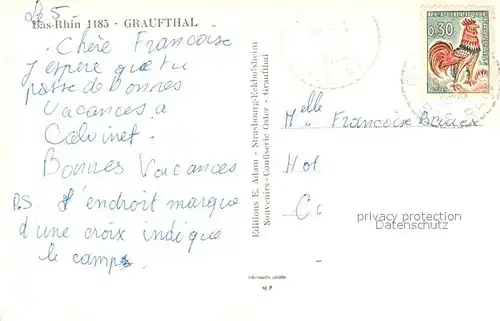 Bas-Rhin 1185 - GRAUFTHAL
Chère Francoise
J'espère que tu
passe de Bonnes
Vacances a
Calvinet.
Bonnes Vacances
P.S. L'endroit marque
d'une croix indique
le camps.
Editions E. Adam - Strasbourg-Eckbolsheim
Souvenirs-Confiserie Oster - Graufthal
0,30
Melle Francoise
Hot
privacy protection
Datenschutz
M F